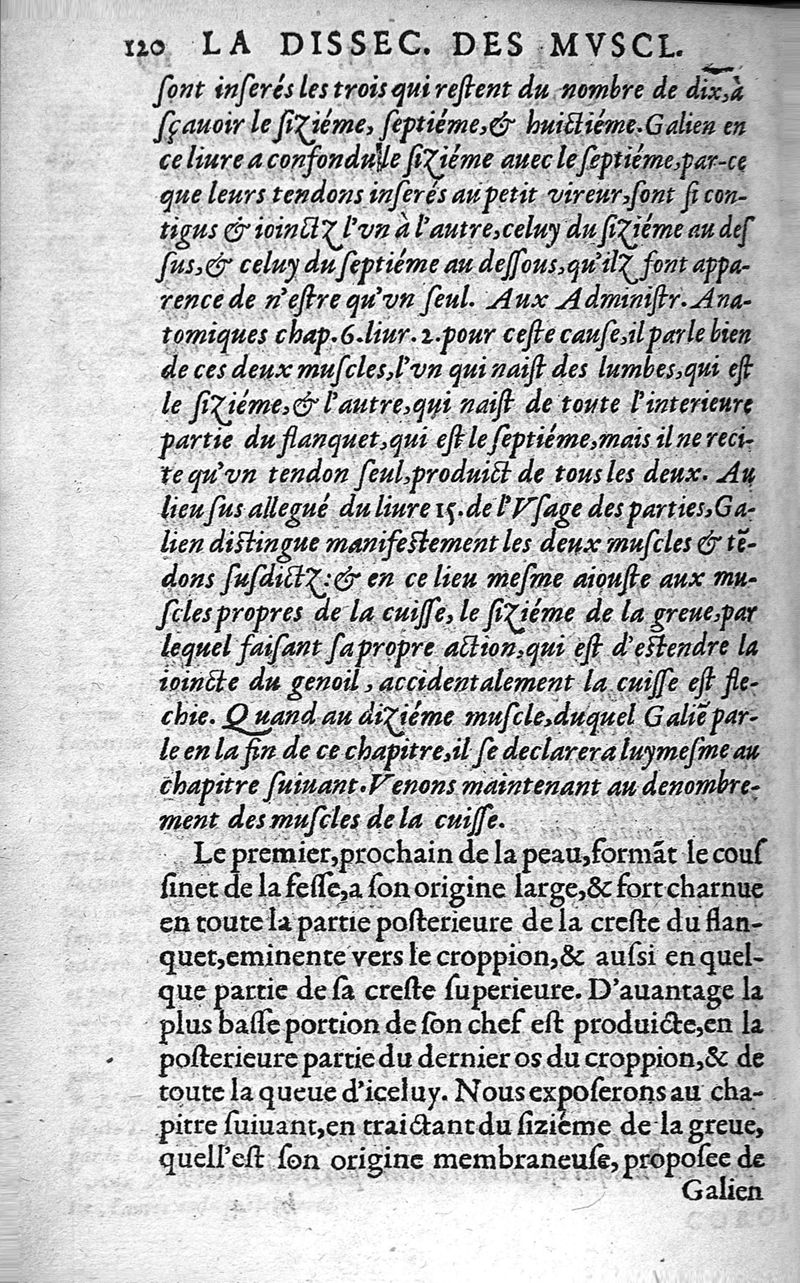 120 LA DISSEC. DES MVSCL.
ſont inſerés les trois qui reſtent du nombre de dix, à
ſçauoir le ſiziéme, ſeptiéme, & huictiéme. Galien en
ce liure a confondu le ſiziéme auec le ſeptiéme, par-ce
que leurs tendons inſerés au petit vireur, ſont ſi con-
tigus & ioinctz l'vn à l'autre, celuy du ſiziéme au deſ
ſus, & celuy du ſeptiéme au deſſous, qu'ilz font appa-
rence de n'eſtre qu'vn ſeul. Aux Adminiſtr. Ana-
tomiques chap. 6. liur. 2. pour ceſte cauſe, il parle bien
de ces deux muſcles, l'vn qui naiſt des lumbes, qui eſt
le ſiziéme, & l'autre, qui naiſt de toute l'interieure
partie du flanquet, qui eſt le ſeptiéme, mais il ne reci-
te qu'vn tendon ſeul, produict de tous les deux. Au
lieu ſus allegué du liure 15. de l'Vſage des parties, Ga-
lien diſtingue manifeſtement les deux muſcles & tē-
dons ſuſdictz: & en ce lieu meſme aiouſte aux mu-
ſcles propres de la cuiſſe, le ſiziéme de la greue, par
lequel faiſant ſa propre action, qui eſt d'eſtendre la
ioincte du genoil, accidentalement la cuiſſe eſt fle-
chie. Quand au diziéme muſcle, duquel Galiē par-
le en la fin de ce chapitre, il ſe declarera luymeſme au
chapitre ſuiuant. Venons maintenant au denombre-
ment des muſcles de la cuiſſe.
Le premier, prochain de la peau, formāt le couſ
ſinet de la feſſe, a ſon origine large, & fort charnue
en toute la partie poſterieure de la creſte du flan-
quet, eminente vers le croppion, & auſsi en quel-
que partie de ſa creſte ſuperieure. D'auantage la
plus baſſe portion de ſon chef eſt produicte, en la
poſterieure partie du dernier os du croppion, & de
toute la queue d'iceluy. Nous expoſerons au cha-
pitre ſuiuant, en traictant du ſiziéme de la greue,
quell'eſt ſon origine membraneuſe, propoſee de
Galien